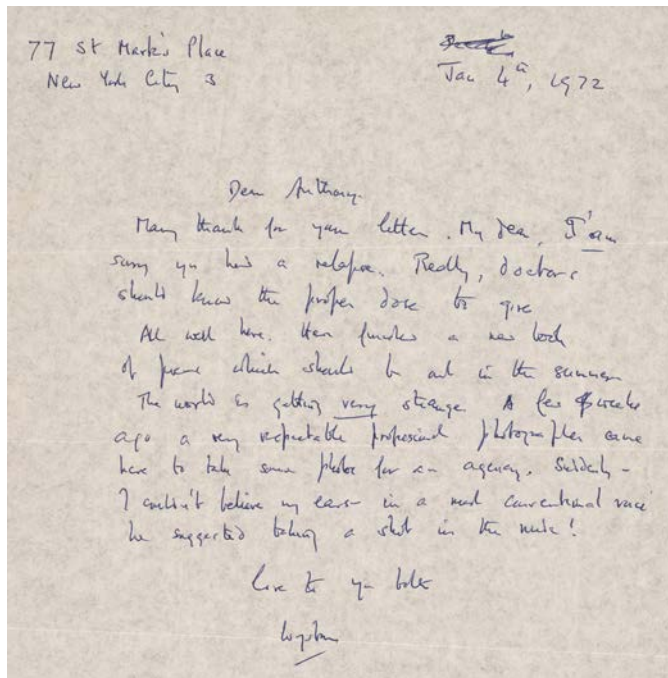 77 St Mark's Place
New York City 3
Jan 4th, 1972
Dear Anthony.
Many thanks for your letter. My dear, I'am
sorry you had a relapse. Really, doctors
should know the proper dose to give
All well here. Have finished a new book
of poems which should be out in the summer
The world is getting very strange. A few weeks
ago a very respectable professional photographer came
here to take some photos for an agency. Suddenly -
I couldn't believe my ears - in a most conventional voice
he suggested taking a shot in the nude!
Love to you both
Wystan